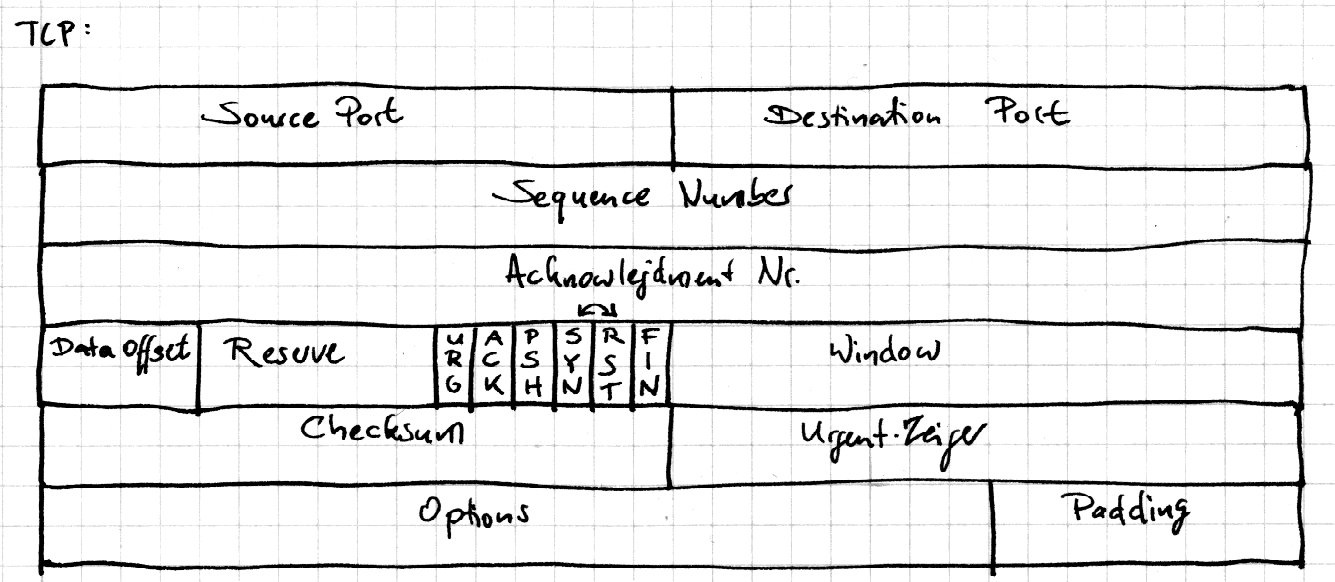 TCP:
Source Port Destination Port
Sequence Number
Acknowlejdment Nr.
Data Offset Reserve URG ACK PSH SYN RST FIN Window
Checksum Urgent-Zeiger
Options Padding